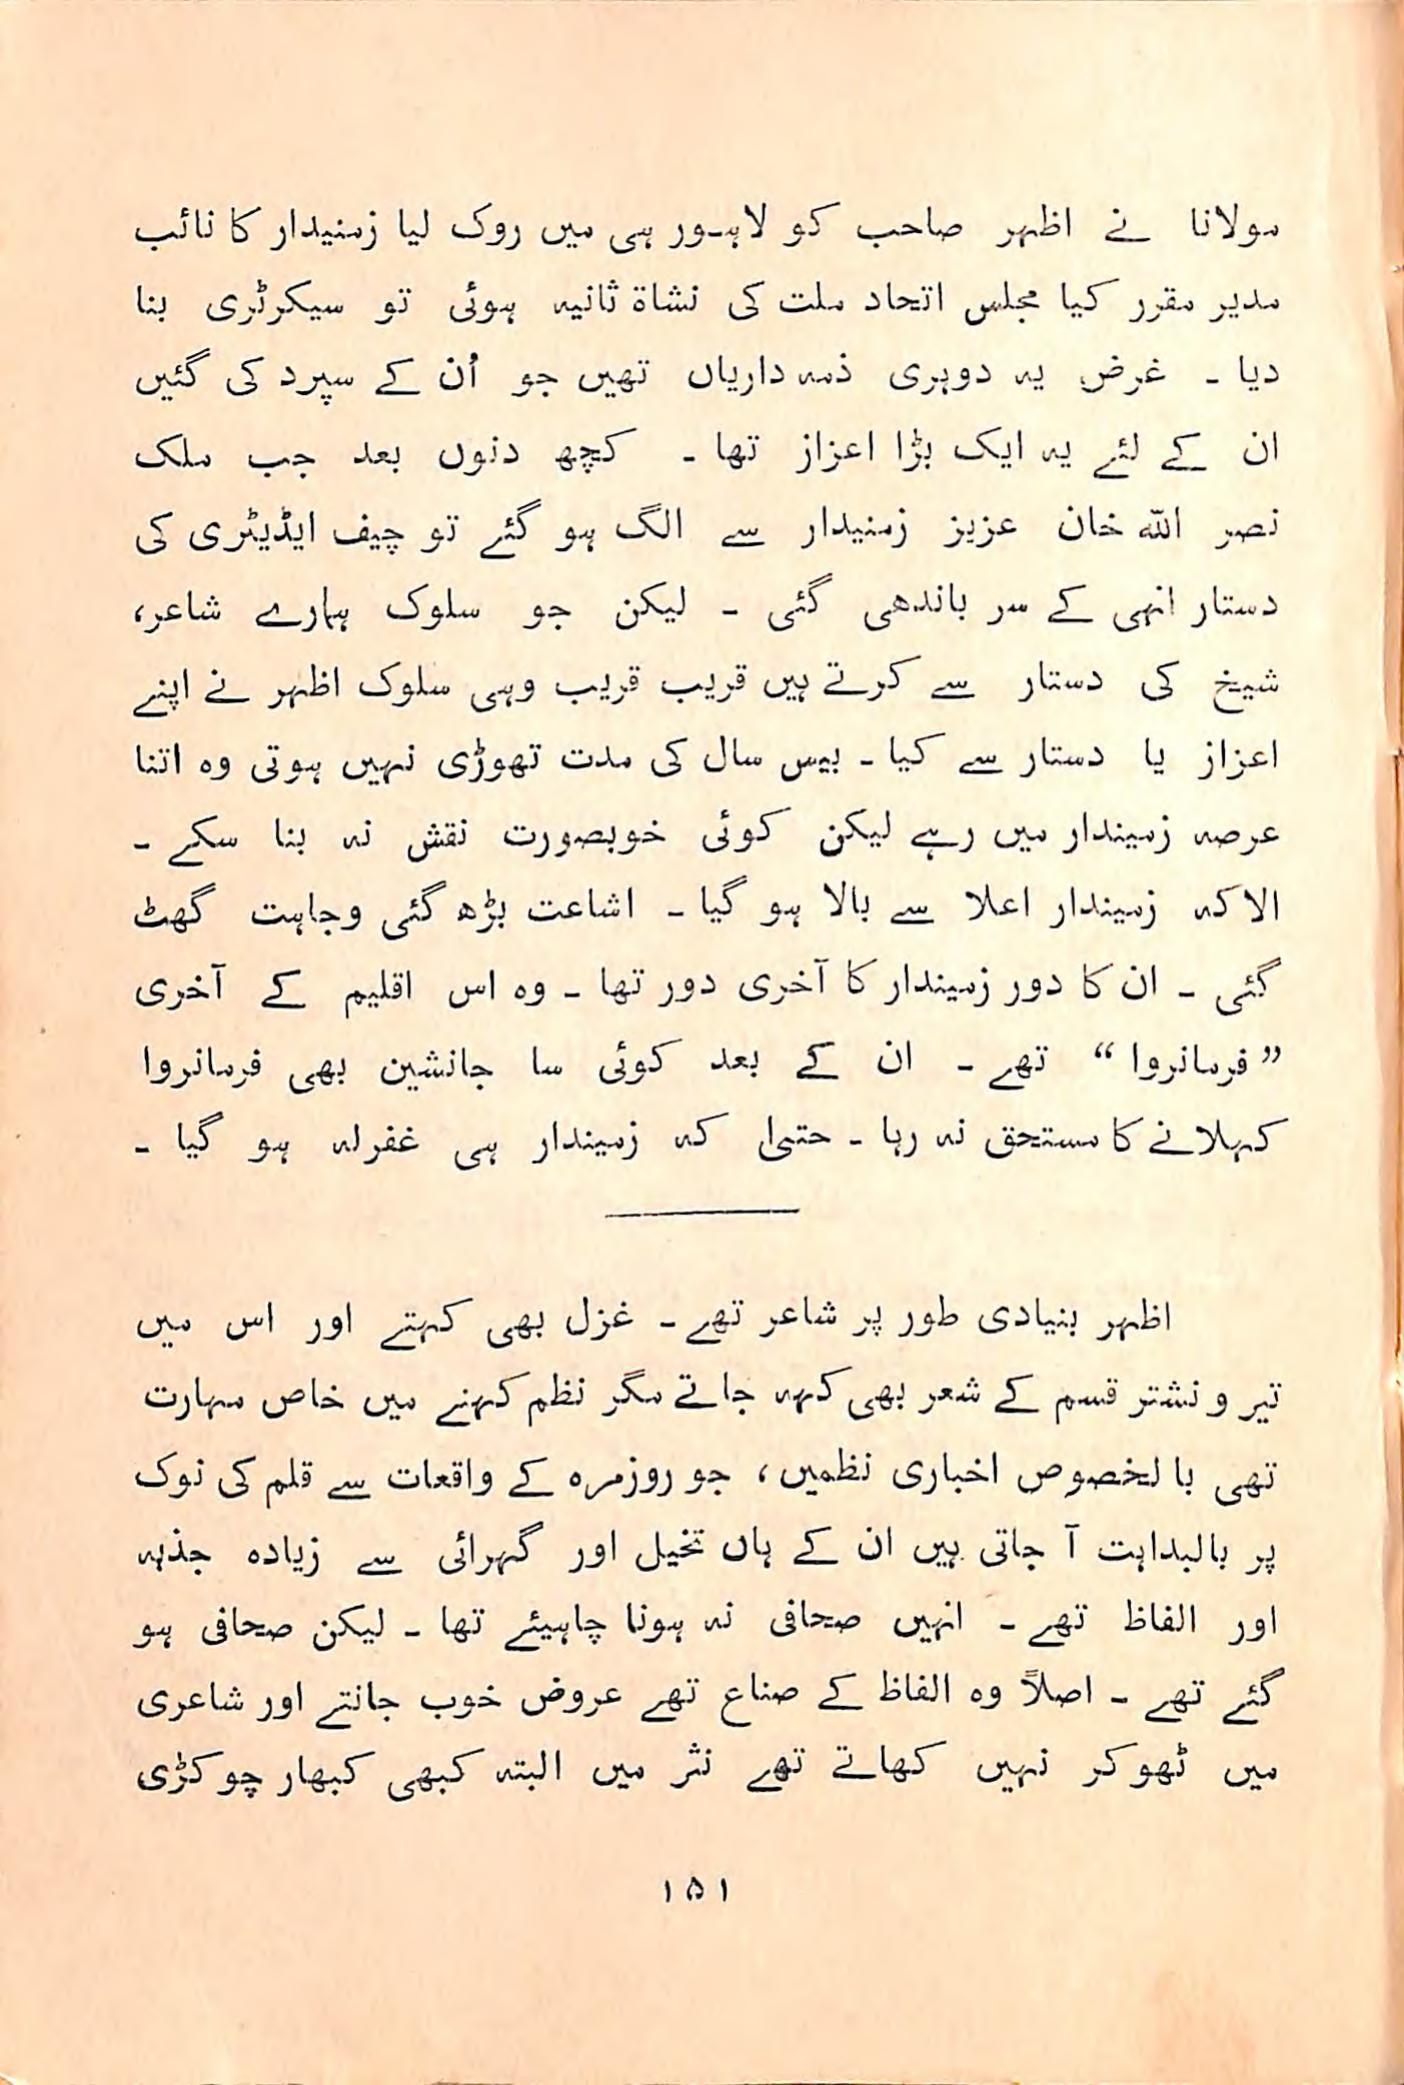 مولانا نے اظہر صاحب کو لاہور ہی میں روک لیا زمنیدار کا نائب
مدیر مقرر کیا مجلس اتحاد ملت کی نشاۃ ثانیہ ہوئی تو سیکرٹری بنا
دیا ۔ غرض یہ دوہری ذمہ داریاں تھیں جو اُن کے سپرد کی گئیں
ان کے لئے یہ ایک بڑا اعزاز تھا ۔ کچھ دنوں بعد جب ملک
نصر اللہ خان عزیز زمنیدار سے الگ ہو گئے تو چیف ایڈیٹری کی
دستار انہی کے سر باندھی گئی ۔ لیکن جو سلوک ہمارے شاعر،
شیخ کی دستار سے کرتے ہیں قریب قریب وہی سلوک اظہر نے اپنے
اعزاز یا دستار سے کیا ۔ بیس سال کی مدت تھوڑی نہیں ہوتی وہ اتنا
عرصہ زمیندار میں رہے لیکن کوئی خوبصورت نقش نہ بنا سکے ۔
الا کہ زمیندار اعلا سے بالا ہو گیا ۔ اشاعت بڑھ گئی وجاہت گھٹ
گئی ۔ ان کا دور زمیندار کا آخری دور تھا ۔ وہ اس اقلیم کے آخری
”فرمانروا“ تھے ۔ ان کے بعد کوئی سا جانشین بھی فرمانروا
کہلانے کا مستحق نہ رہا ۔ حتیٰ کہ زمیندار ہی غفرلہ ہو گیا ۔
اظہر بنیادی طور پر شاعر تھے ۔ غزل بھی کہتے اور اس میں
تیر و نشتر قسم کے شعر بھی کہہ جاتے مگر نظم کہنے میں خاص مہارت
تھی بالخصوص اخباری نظمیں، جو روزمرہ کے واقعات سے قلم کی نوک
پر بالبداہت آ جاتی ہیں ان کے ہاں تخیل اور گہرائی سے زیادہ جذبہ
اور الفاظ تھے ۔ انہیں صحافی نہ ہونا چاہیئے تھا ۔ لیکن صحافی ہو
گئے تھے ۔ اصلاً وہ الفاظ کے صناع تھے عروض خوب جانتے اور شاعری
میں ٹھوکر نہیں کھاتے تھے نثر میں البتہ کبھی کبھار چوکڑی
۱۵۱